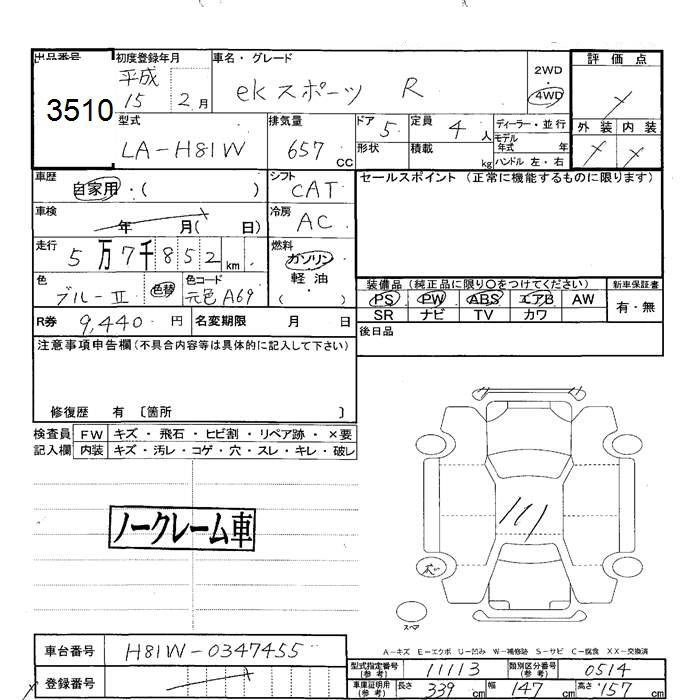 出品番号 初度登録年月 車名・グレード 評価点
3510 平成 15 2月 ekスポーツ R 2WD 4WD
型式 排気量 ドア 定員 ディーラー・並行 外装 内装
LA-H81W 657 CC 5 4 人 モデル年式 年
形状 積載 kg ハンドル 左・右
車歴 自家用・( ) シフト CAT セールスポイント (正常に機能するものに限ります)
車検 年 月( 日) 冷房 AC
走行 5万7千852km 燃料 ガソリン 軽油・( )
色 ブルーⅡ 色替 色コード 元色A69
装備品 (純正品に限り○をつけてください) 新車保証書
PS PW ABS エアB AW 有・無
SR ナビ TV カワ
R券 9,440円 名変期限 月 日
後日品
注意事項申告欄(不具合内容等は具体的に記入して下さい)
修復歴 有 〔箇所 〕
検査員 FW キズ・飛石・ヒビ割・リペア跡・×要
記入欄 内装 キズ・汚レ・コゲ・穴・スレ・キレ・破レ
ノークレーム車
スペア
A-キズ E-エクボ U-凹み W-補修跡 S-サビ C-腐食 XX-交換済
車台番号 H81W-0347455
型式指定番号(参考) 11113 類別区分番号(参考) 0514
登録番号
車庫証明用(参考) 長さ 339cm 幅 147cm 高さ 157cm